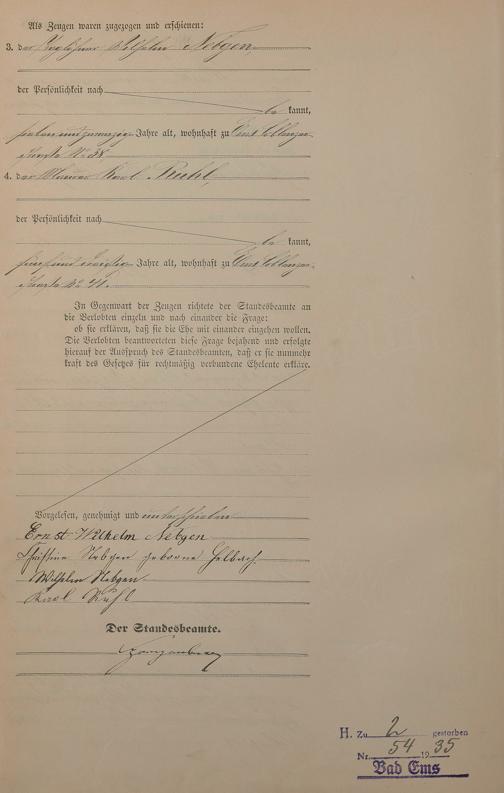 Als Zeugen waren zugezogen und erschienen:
3. der Wilhelm Nebgen,
der Persönlichkeit nach
be kannt,
siebenundzwanzig Jahre alt, wohnhaft zu Ems,
No 38.
4. der Maurer Karl Ruhl,
der Persönlichkeit nach
be kannt,
fünfundzwanzig Jahre alt, wohnhaft zu Ems,
No 41.
In Gegenwart der Zeugen richtete der Standesbeamte an
die Verlobten einzeln und nach einander die Frage:
ob sie erklären, daß sie die Ehe mit einander eingehen wollen.
Die Verlobten beantworteten diese Frage bejahend und erfolgte
hierauf der Ausspruch des Standesbeamten, daß er sie nunmehr
kraft des Gesetzes für rechtmäßig verbundene Eheleute erkläre.
Vorgelesen, genehmigt und unterschrieben
Ernst Wilhelm Nebgen
Christine Nebgen geborne Helbach.
Wilhelm Nebgen.
Karl Ruhl
Der Standesbeamte.
H. Zu 2 gestorben
Nr. 54 1935
Bad Ems